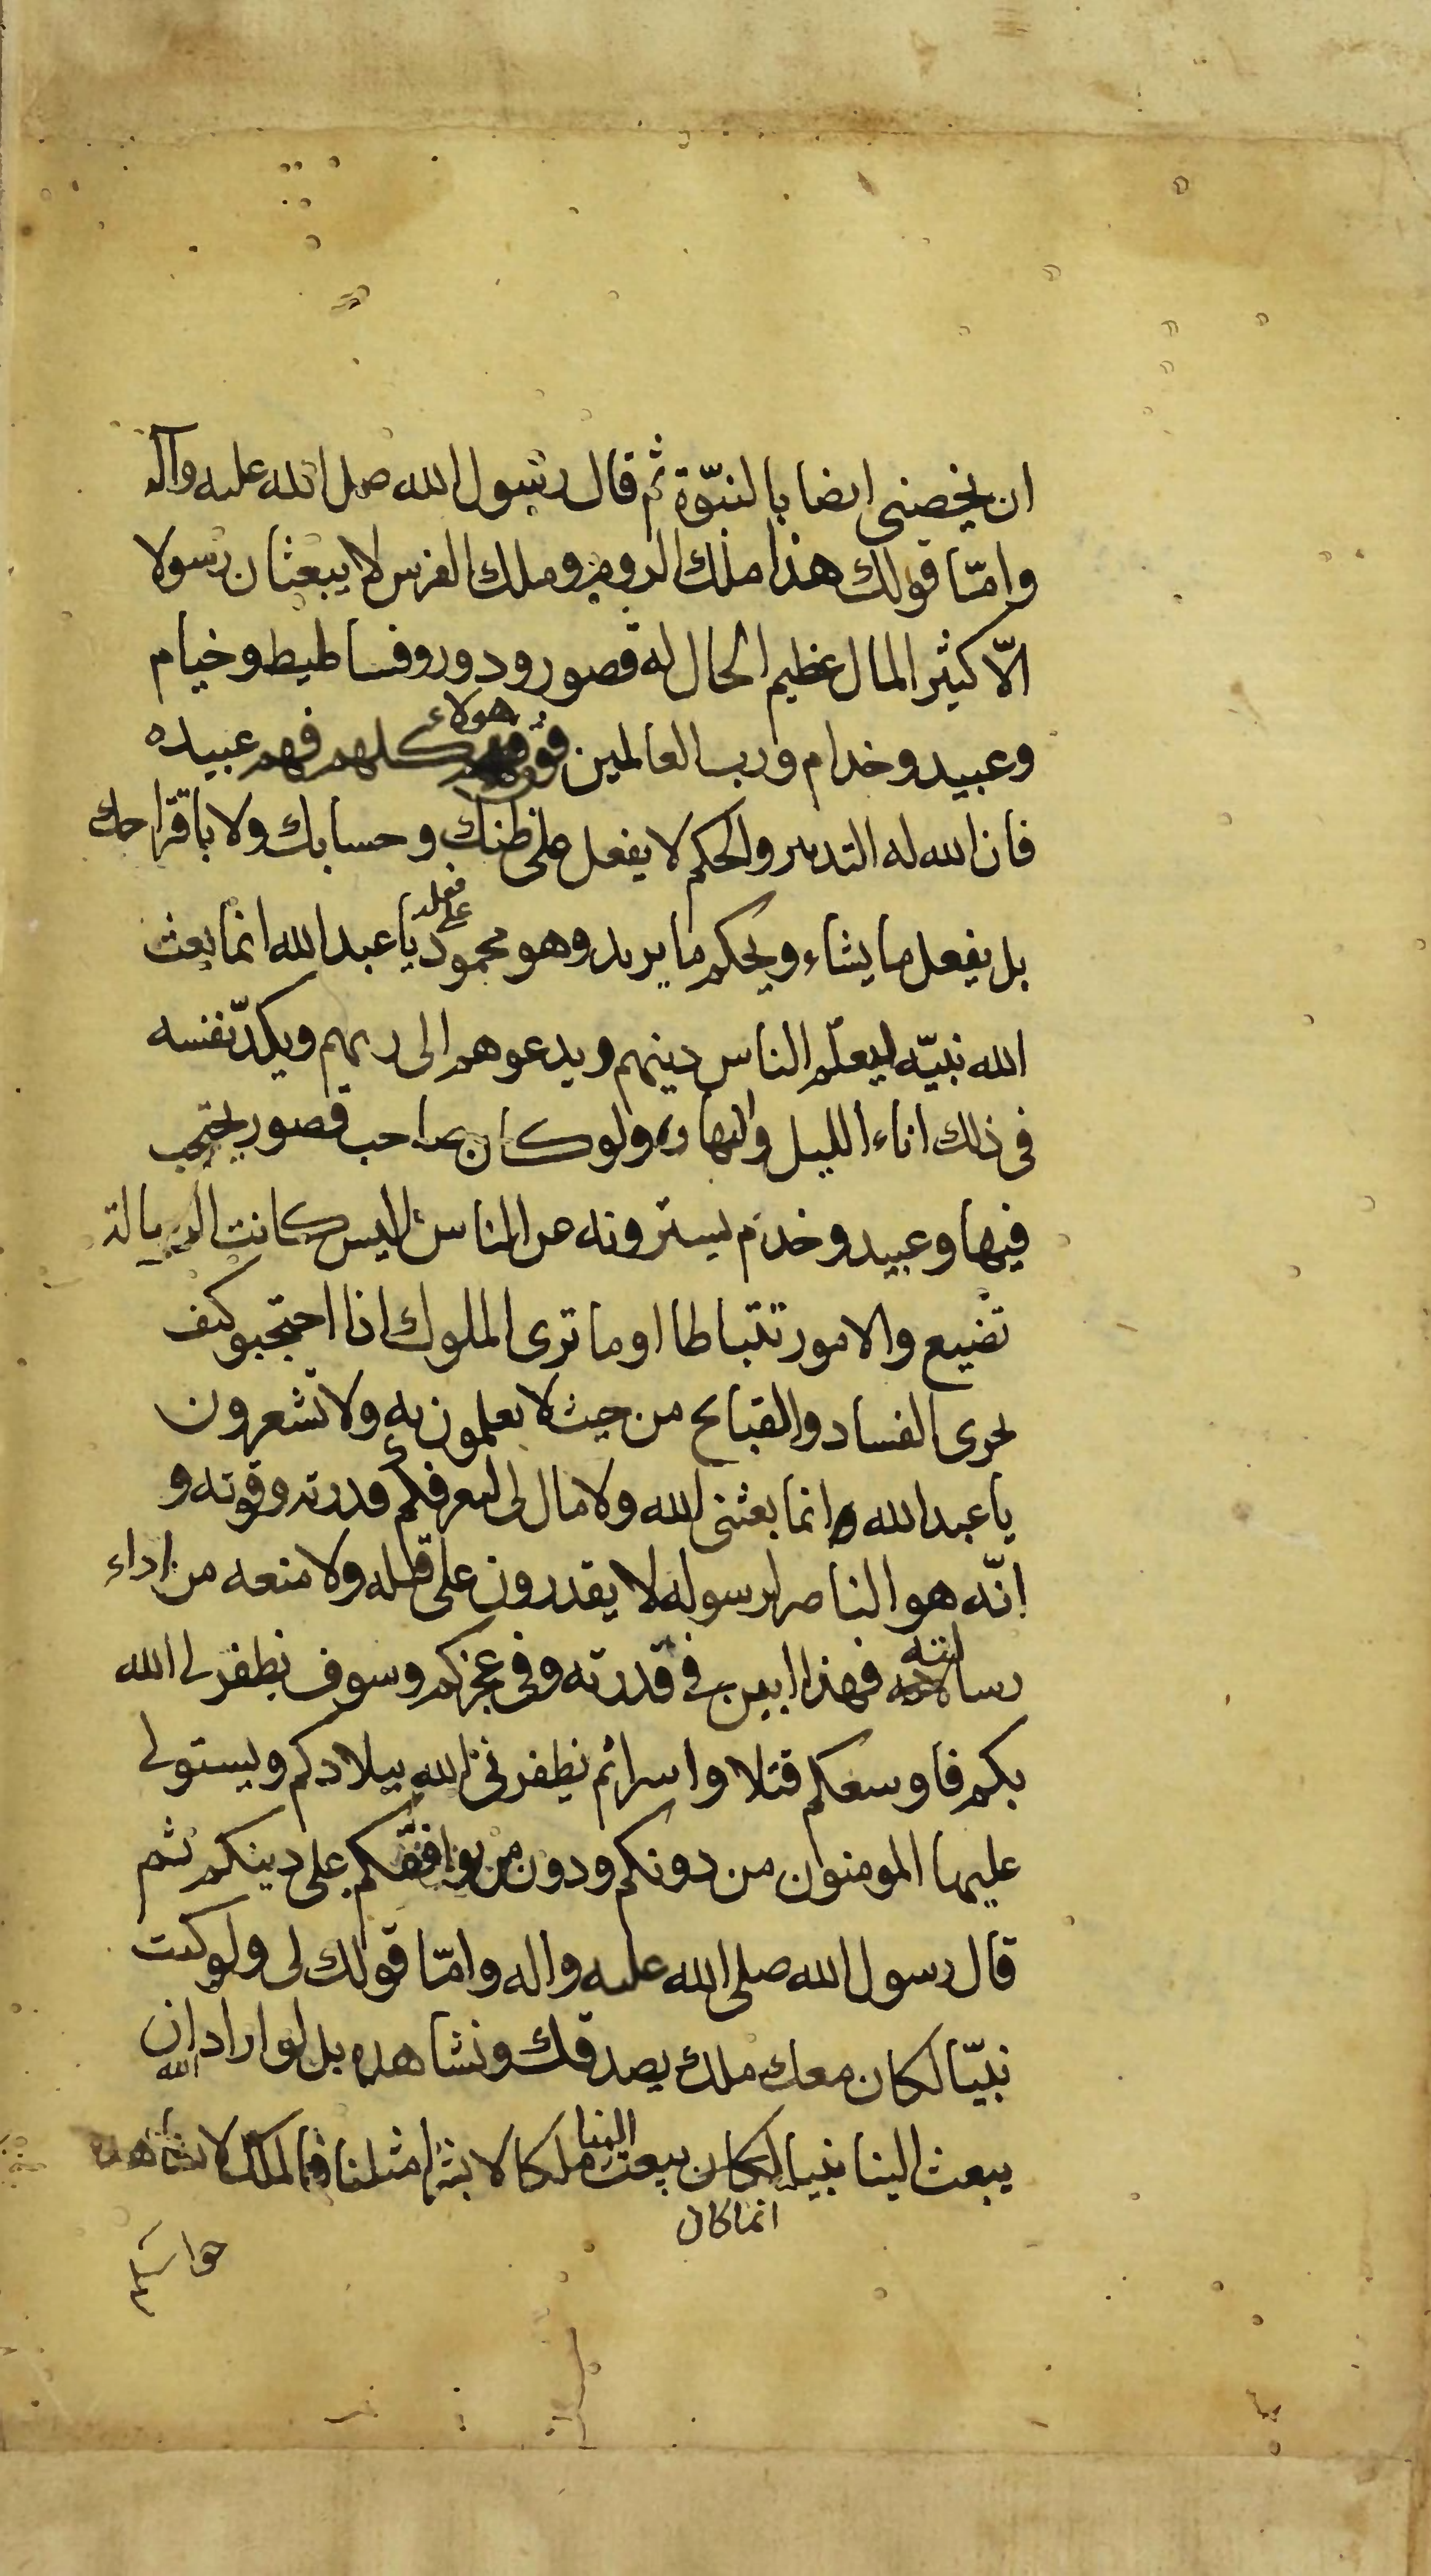 ان يخصنى ايضا بالنبوّة ثم قال رسول الله صلى الله عليه وآله
وامّا قولك هذا ملك الروم وملك الفرس لا يبعثان رسولا
الّا كثير المال عظيم الحال له قصور ودور وفساطيط وخيام
وعبيد وخدام ورب العالمين فوق هولاء كلهم فهم عبيده
فان الله له التدبير والحكم لا يفعل على ظنك وحسابك ولا باقتراحك
بل يفعل ما يشاء ويحكم ما يريد وهو محمود يا عبد الله انما بعث
الله نبيّه ليعلّم الناس دينهم ويدعوهم الى ربهم ويكدّ نفسه
فى ذلك اناء الليل والنهار ولو كان صاحب قصور يحتجب
فيها وعبيد وخدم يسترونه عن الناس اليس كانت الرسالة
تضيع والامور تتباطا اوما ترى الملوك اذا احتجبو كيف
يجرى الفساد والقبايح من حيث لا يعلمون به ولا تشعرون
يا عبد الله انما بعثنى الله ولا مال لى ليعرفكم قدرته وقوته و
انّه هو الناصر لرسوله لا يقدرون على قتله ولا منعه من اداء
رسالته فهذا ابين فى قدرته وفى عجزكم وسوف يظفرنى الله
بكم فاوسعكم قتلا واسرا ثم يظفرنى الله ببلادكم ويستولى
عليها المومنون من دونكم ودون من يوافقكم على دينكم ثم
قال رسول الله صلى الله عليه واله وامّا قولك لى ولو كنت
نبيّا لكان معك ملك يصدقك ونشاهده بل لو اراد الله ان
يبعث الينا نبيا لكان يبعث الينا ملكا لا بشرا مثلنا فالملك لا تشاهده
انما كان
حواسكم